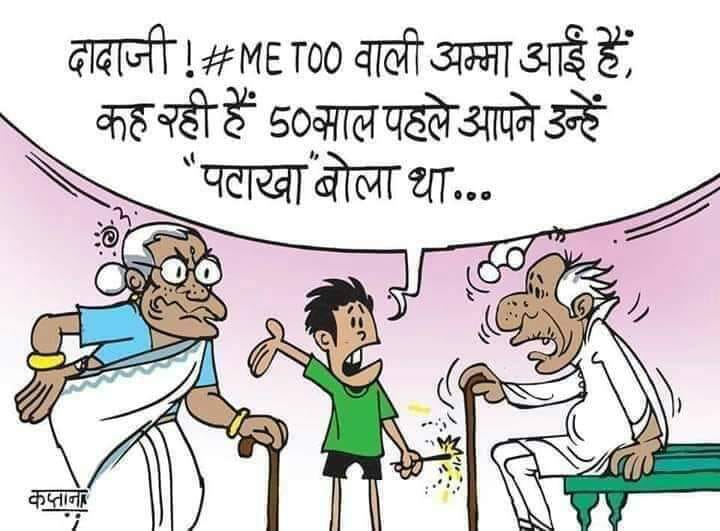 दादाजी ! #ME TOO वाली अम्मा आई हैं,
कह रही हैं 50 साल पहले आपने उन्हें
"पटाखा" बोला था...
कप्तान